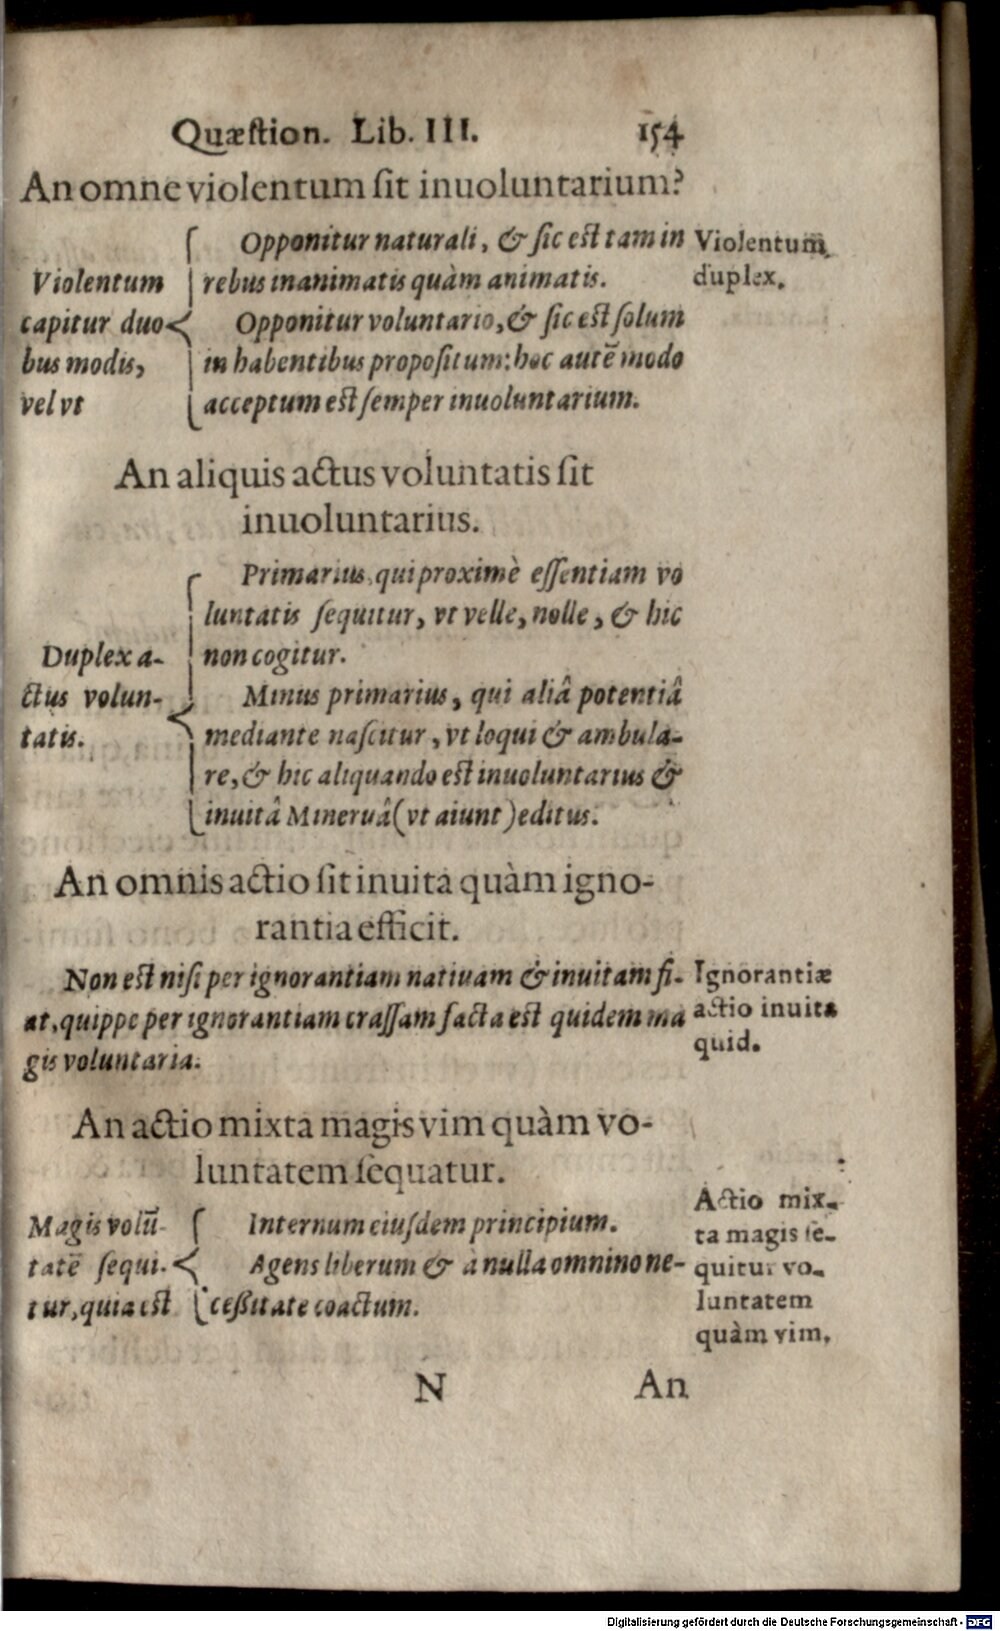 Quæstion. Lib. III. 154
An omne violentum sit inuoluntarium?
Violentum
capitur duo
bus modis,
vel vt
Opponitur naturali, & sic est tam in
rebus inanimatis quàm animatis.
Opponitur voluntario, & sic est solum
in habentibus propositum: hoc autē modo
acceptum est semper inuoluntarium.
Violentum
duplex.
An aliquis actus voluntatis sit
inuoluntarius.
Duplex a-
ctus volun-
tatis.
Primarius, qui proximè essentiam vo
luntatis sequitur, vt velle, nolle, & hic
non cogitur.
Minus primarius, qui aliâ potentiâ
mediante nascitur, vt loqui & ambula-
re, & hic aliquando est inuoluntarius &
inuitâ Mineruâ (vt aiunt) editus.
An omnis actio sit inuita quàm igno-
rantia efficit.
Non est nisi per ignorantiam natiuam & inuitam fi-
at, quippe per ignorantiam crassam facta est quidem ma
gis voluntaria.
Ignorantiæ
actio inuita
quid.
An actio mixta magis vim quàm vo-
luntatem sequatur.
Magis volū-
tatē sequi-
tur, quia est
Internum eiusdem principium.
Agens liberum & à nulla omnino ne-
cessitate coactum.
Actio mix-
ta magis se-
quitur vo-
luntatem
quàm vim.
N An
Digitalisierung gefördert durch die Deutsche Forschungsgemeinschaft - DFG